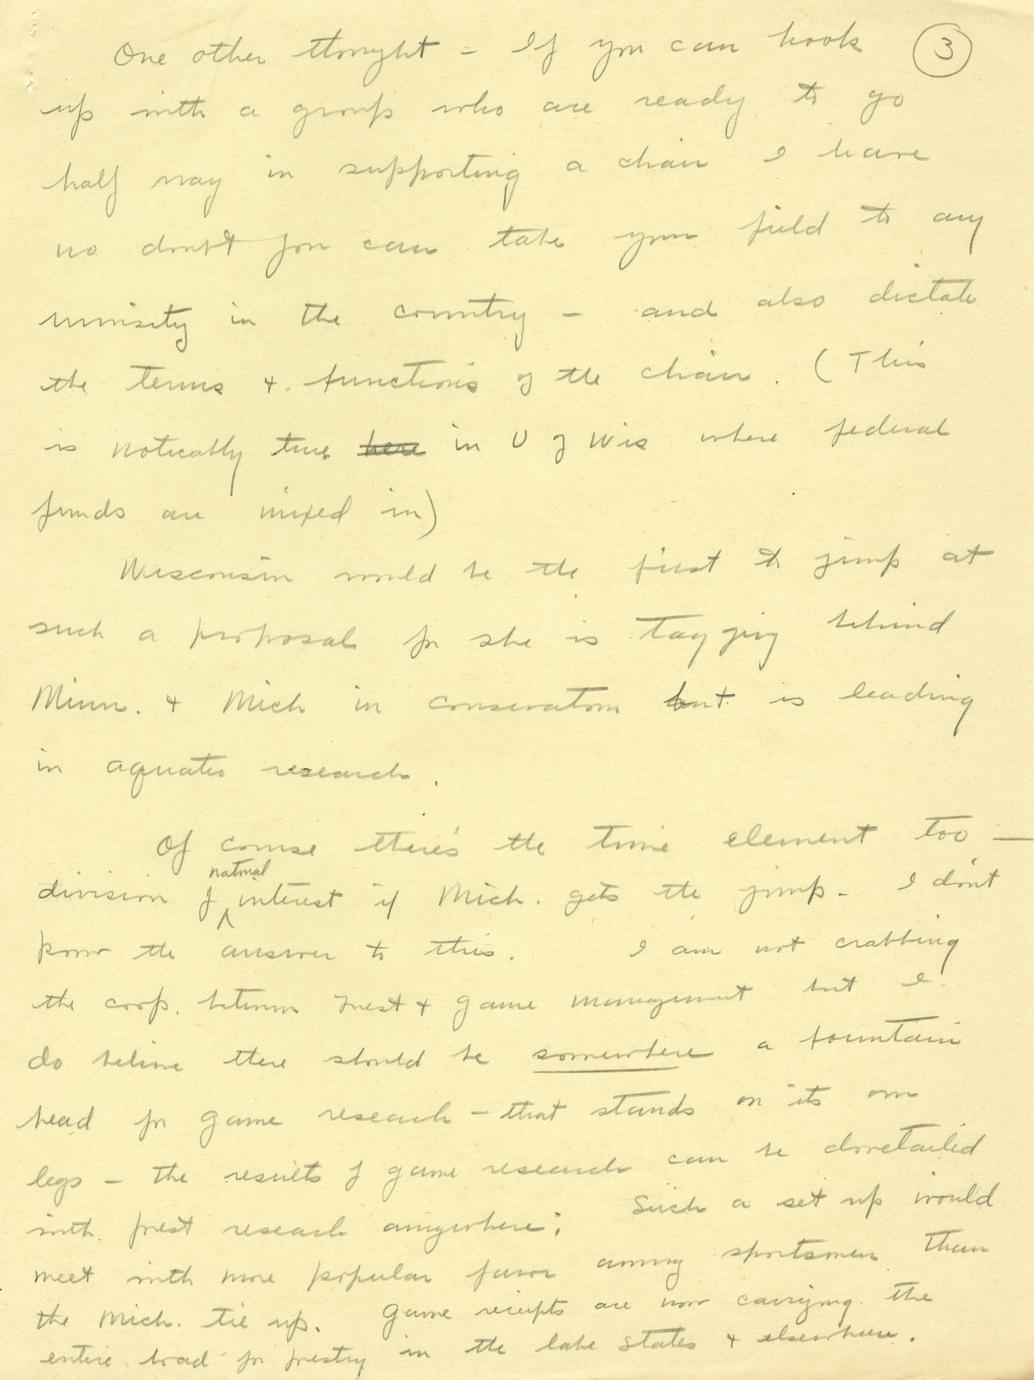 One other thought - If you can hook 3
up with a group who are ready to go
half way in supporting a chair I have
no doubt you can take your field to any
university in the country - and also dictate
the terms & functions of the chair. (This
is noticably true here in U of Wis where federal
funds are mixed in)
Wisconsin would be the first to jump at
such a proposal for she is tagging behind
Minn. & Mich in conservation but is leading
in aquatic research.
Of course there's the time element too —
natural
division of interest if Mich. gets the jump - I don't
know the answer to this. I am not crabbing
the coop. between forest & game management but I
do believe there should be somewhere a fountain
head for game research - that stands on its own
legs - the results of game research can be dovetailed
with forest research anywhere; Such a set up would
meet with more popular favor among sportsmen than
the Mich. tie up. Game receipts are now carrying the
entire load for forestry in the lake states & elsewhere.